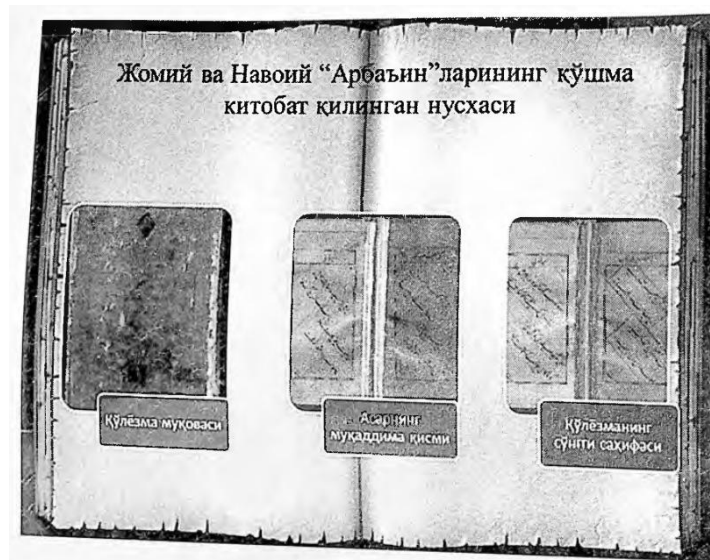 Жомий ва Навоий “Арбаъин”ларининг қўшма
китобат қилинган нусхаси
Қўлёзма муқоваси
Асарнинг
муқаддима қисми
Қўлёзманинг
сўнгги саҳифаси